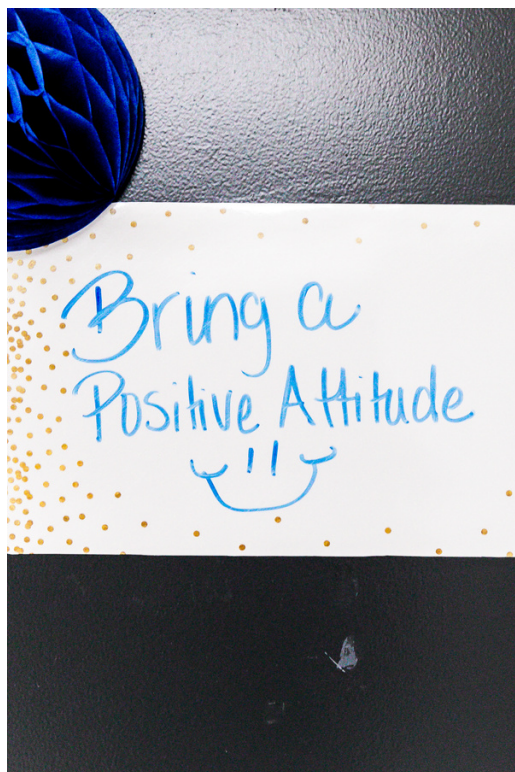 Bring a
Positive Attitude